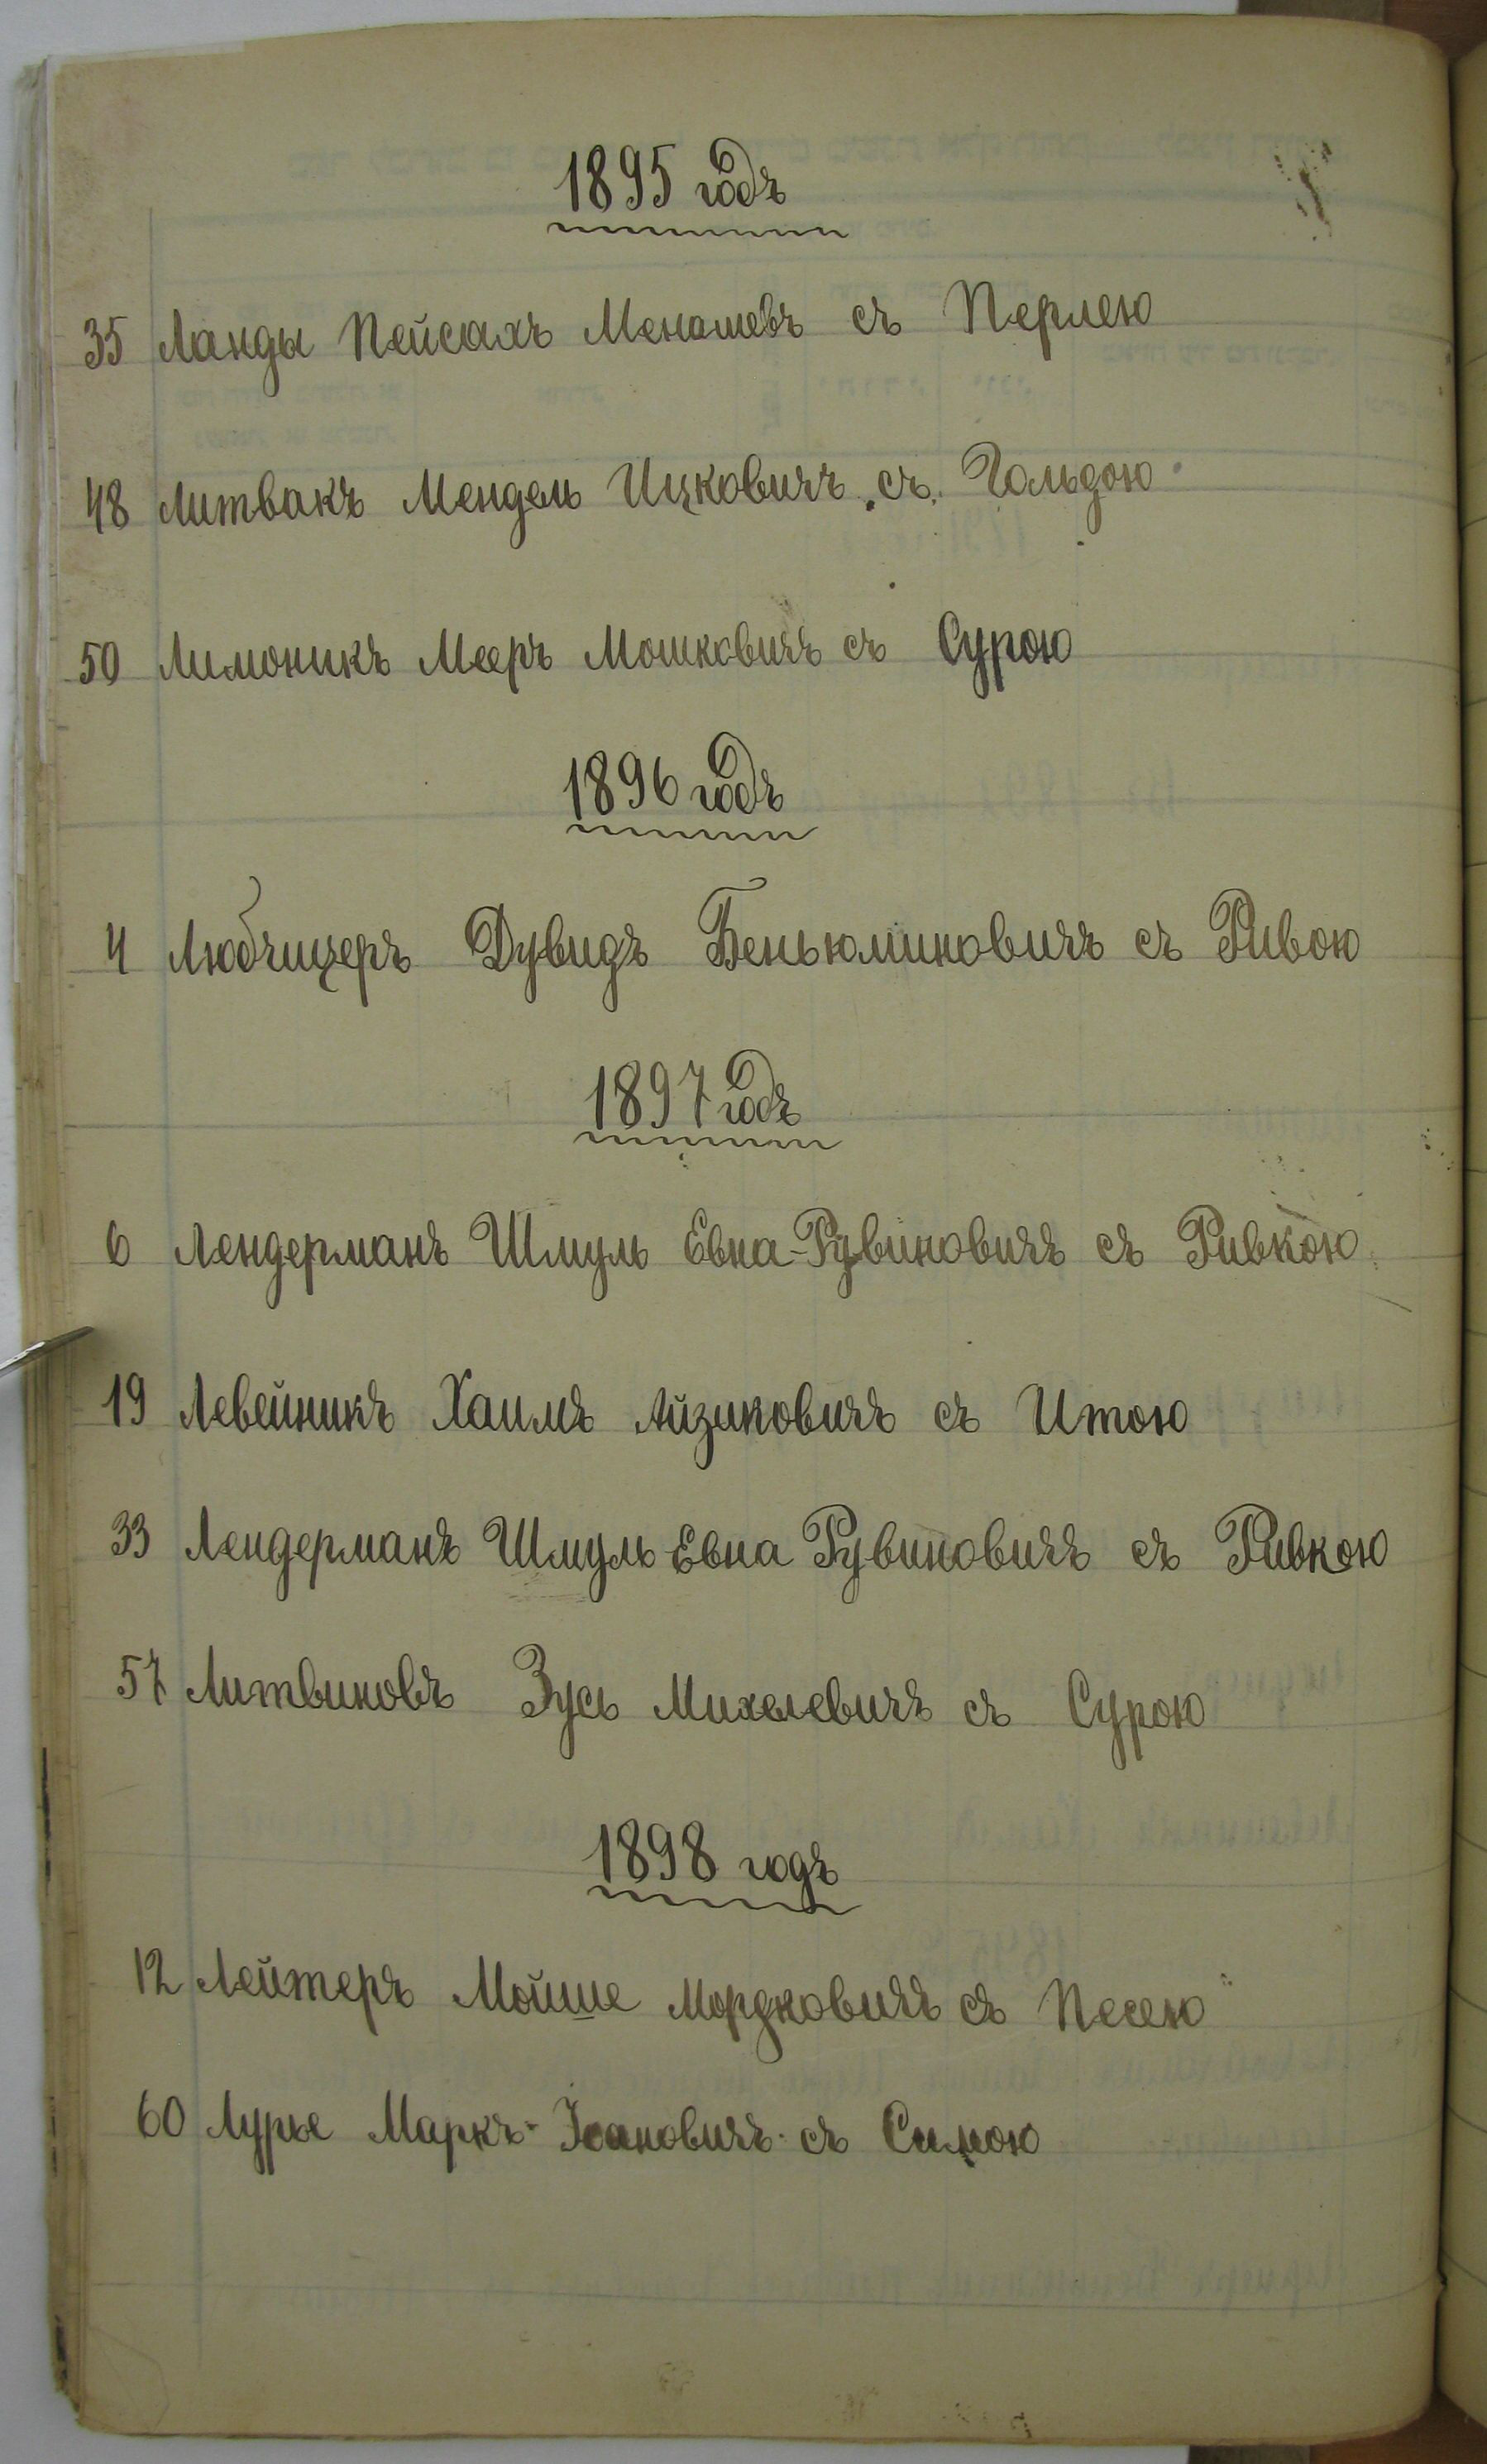 1895 годъ
35 Ланды Пейсахъ Менашевъ съ Перлею
48 Литвакъ Мендель Ицковичъ съ Гольдою
50 Лимоникъ Мееръ Мошковичъ съ Сурою
1896 годъ
4 Любчицеръ Дувидъ Беньюминовичъ съ Ривою
1897 годъ
6 Лендерманъ Шмуль Евна-Рувиновичъ съ Ривкою
19 Левейникъ Хаимъ Айзиковичъ съ Итою
33 Лендерманъ Шмуль-Евна Рувиновичъ съ Ривкою
57 Литвиновъ Зусь Михелевичъ съ Сурою
1898 годъ
12 Лейтеръ Мойше Мордковичъ съ Песею
60 Лурье Маркъ съ Симою